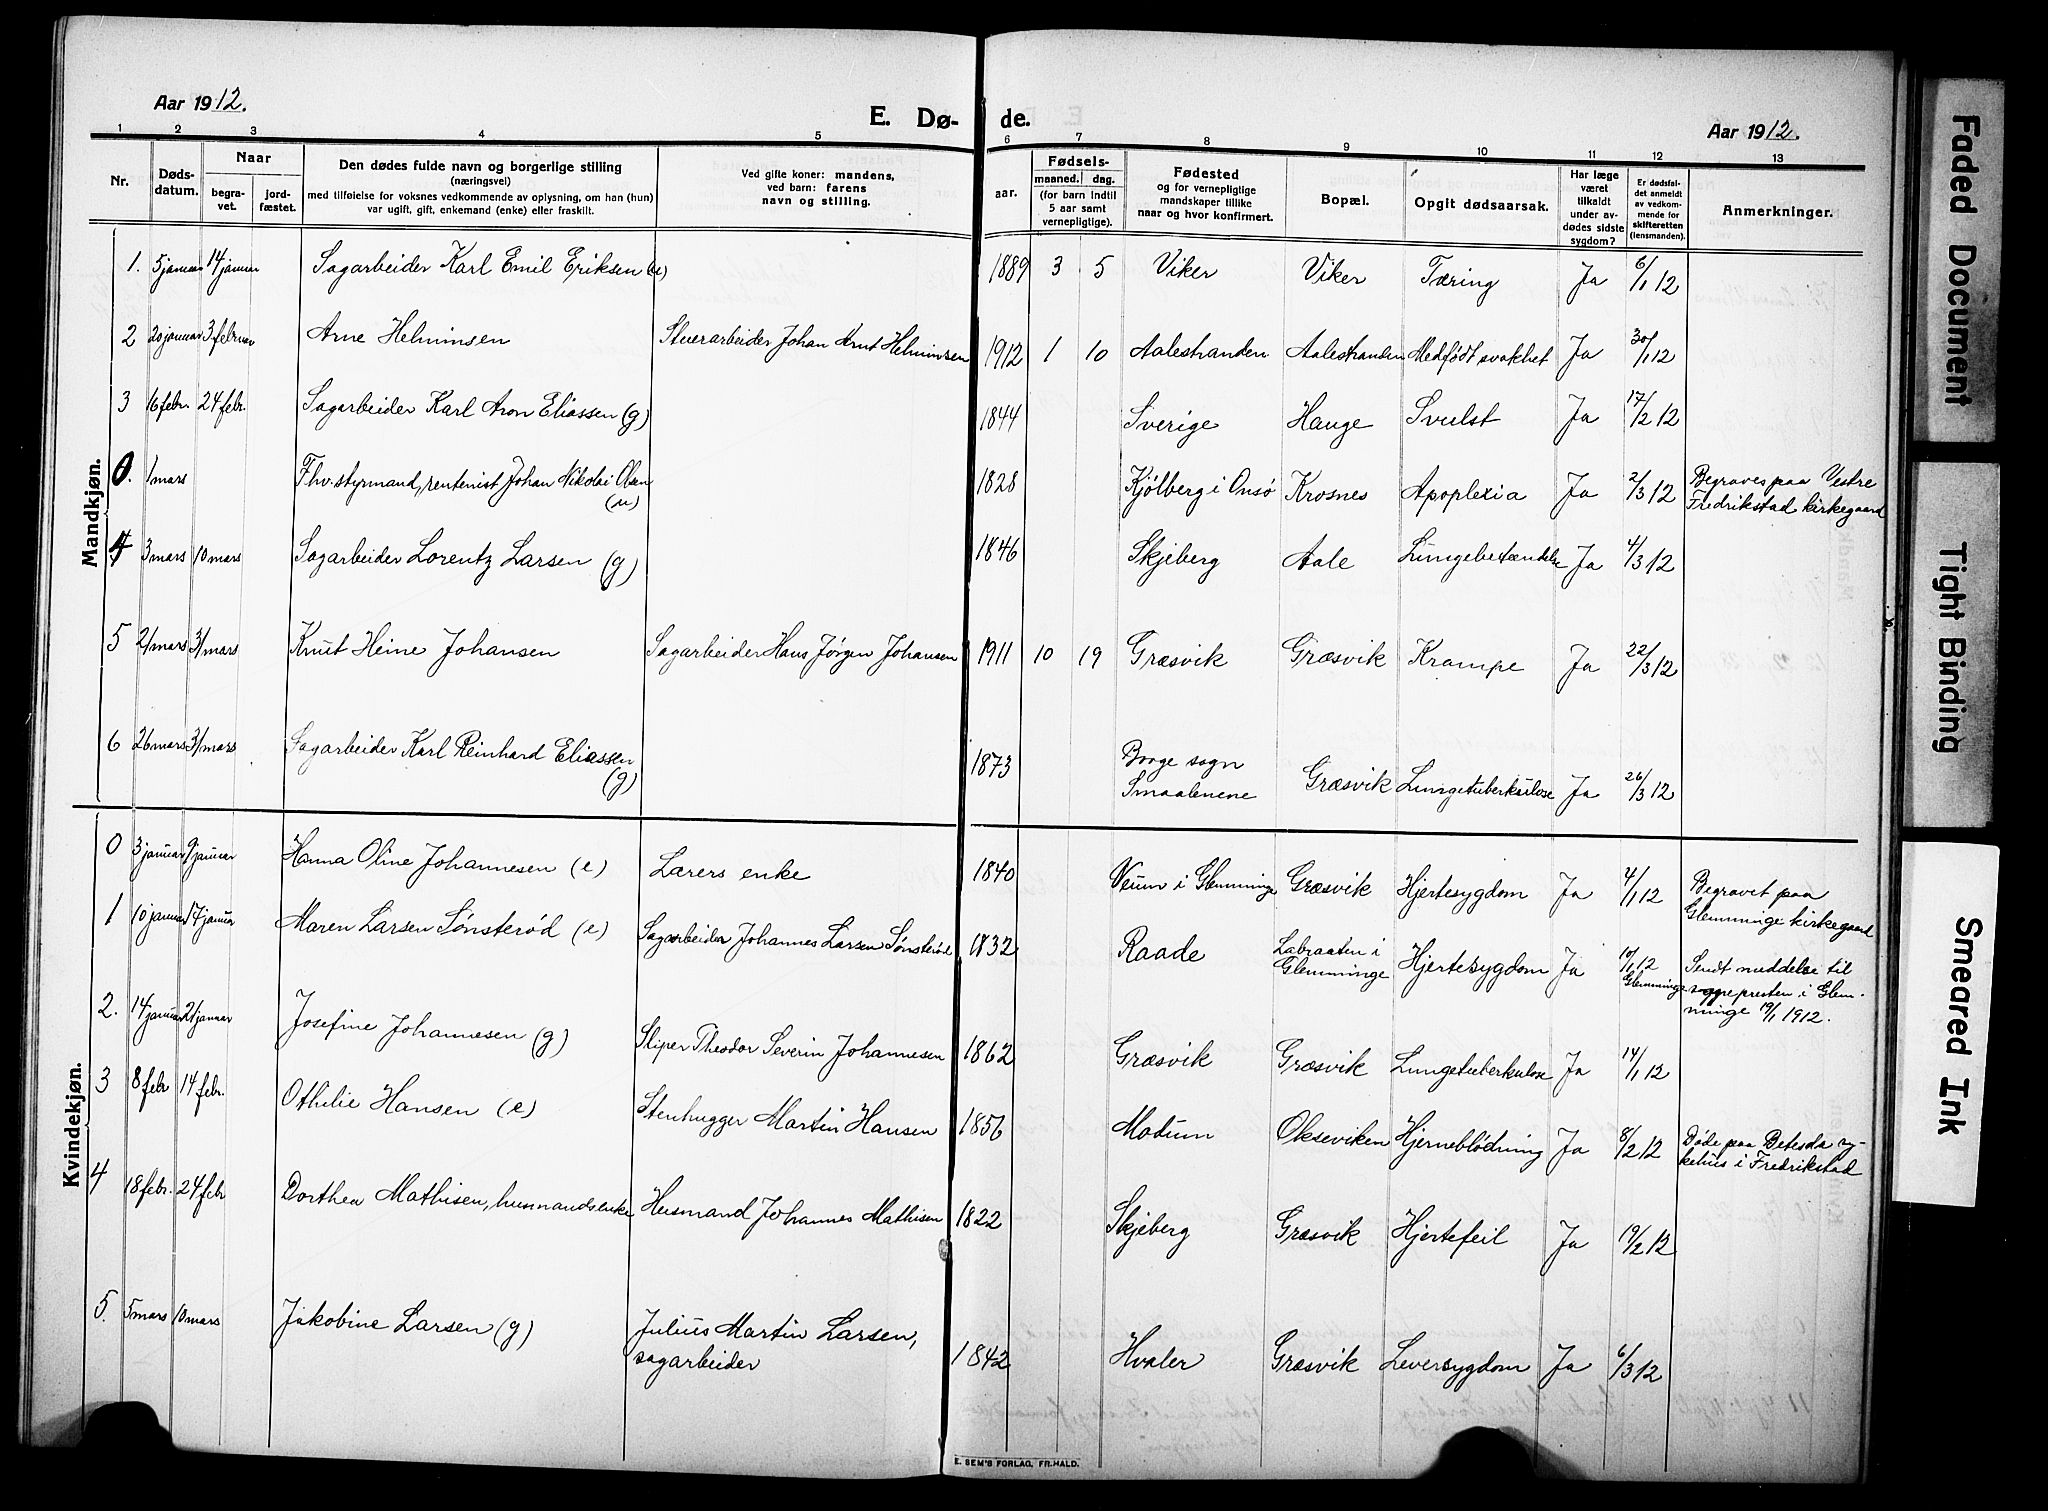 Aar 1912.
E. Dø- de.
Aar 1912.
1 2 3 4 5 6 7 8 9 10 11 12 13
Nr.
Døds-
datum.
Naar
begra-
vet.
jord-
fæstet.
Den dødes fulde navn og borgerlige stilling
(næringsvei)
med tilføielse for voksnes vedkommende av oplysning, om han (hun)
var ugift, gift, enkemand (enke) eller fraskilt.
Ved gifte koner: mandens,
ved barn: farens
navn og stilling.
aar.
Fødsels-
maaned. dag.
(for barn indtil
5 aar samt
vernepligtige).
Fødested
og for vernepligtige
mandskaper tillike
naar og hvor konfirmert.
Bopæl.
Opgit dødsaarsak.
Har læge
været
tilkaldt
under av-
dødes sidste
sygdom?
Er dødsfal-
det anmeldt
av vedkom-
mende for
skifteretten
(lensmanden).
Anmerkninger.
Mandkjøn.
1. 5 januar 14 januar Sagarbeider Karl Emil Eriksen (u) 1889 3 5 Viker Viker Tæring Ja 6/1 12
2 20 januar 3 februar Arne Helminsen Stuerarbeider Johan Arnt Helminsen 1912 1 10 Aalestranden Aalestranden Medfødt svakhet Ja 30/1 12
3 16 febr. 24 febr. Sagarbeider Karl Aron Eliassen (g) 1844 Sverige Hauge Svulst Ja 17/2 12
0. 1 mars Fhv. styrmand, rentenist Johan Nikolai Olsen 1828 Kjølberg i Onsø Krosnes Apoplexia Ja 2/3 12 Begraves paa Vestre
(u) Fredrikstad kirkegaard
4 3 mars 10 mars Sagarbeider Lorentz Larsen (g) 1846 Skjeberg Aale Lungebetændelse Ja 4/3 12
5 21 mars 31 mars Knut Heine Johansen Sagarbeider Hans Jørgen Johansen 1911 10 19 Græsvik Græsvik Krampe Ja 22/3 12
6 26 mars 31 mars Sagarbeider Karl Reinhard Eliassen 1873 Borge sogn
(g) Smaalenene Græsvik Lungetuberkulose Ja 26/3 12
Kvindekjøn.
0 3 januar 9 januar Hanna Oline Johannesen (e) Lærers enke 1840 Veum i Glemminge Græsvik Hjertesygdom Ja 4/1 12 Begravet paa
Glemminge kirkegaard
1 10 januar 14 januar Maren Larsen Sønsterød (e) Sagarbeider Johannes Larsen Sønsterød 1832 Raade Labraaten i
Glemminge Hjertesygdom Ja 10/1 12
Glemminge Sendt meddelse til
sognepresten i Glem-
minge 19/1 1912.
2. 14 januar 21 januar Josefine Johannesen (g) Sliper Theodor Severin Johannesen 1862 Græsvik Græsvik Lungetuberkulose Ja 14/1 12
3 8 febr 14 febr. Othilie Hansen (e) Stenhugger Martin Hansen 1856 Modum Okseviken Hjerneblødning Ja 8/2 12 Døde paa Betesda sy-
kehus i Fredrikstad
4 18 febr. 24 febr Dorthea Mathisen, husmandsenke Husmand Johannes Mathisen 1822 Skjeberg Græsvik Hjertefeil Ja 19/2 12
5. 5 mars 10 mars Jakobine Larsen (g) Julius Martin Larsen,
sagarbeider 1842 Hvaler Græsvik Leversygdom Ja 6/3 12
E. SEM'S FORLAG, FR.HALD.
Faded Document
Tight Binding
Smeared Ink